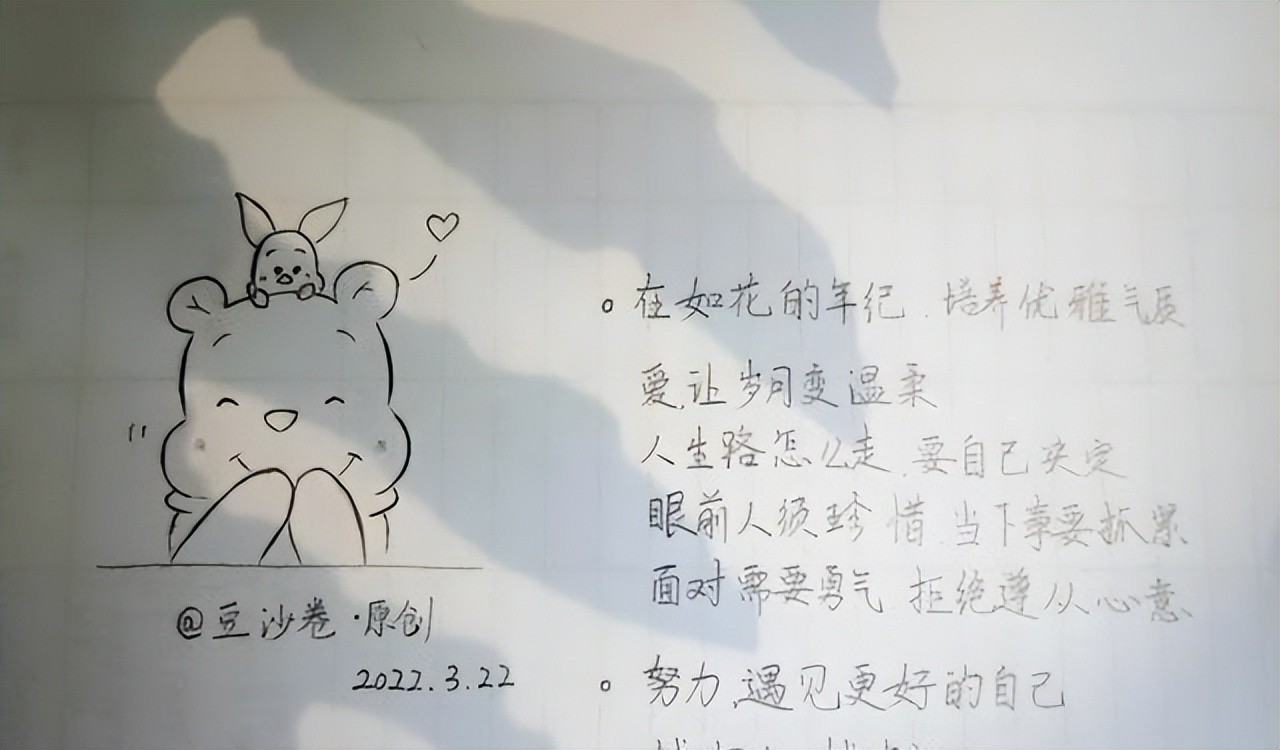 在如花的年纪.培养优雅气质
爱,让岁月变温柔
人生路怎么走.要自己决定
眼前人须珍惜.当下事要抓紧
面对需要勇气 拒绝遵从心意
@豆沙卷·原创
2022.3.22
努力,遇见更好的自己